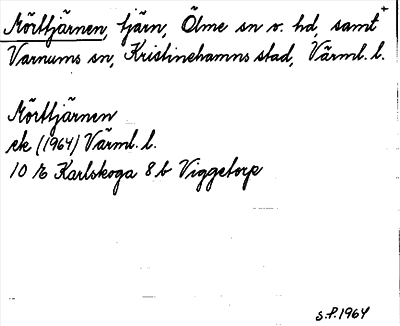 Mörttjärnen, tjärn, Ölme sn o. hd, samt +
Varnums sn, Kristinehamns stad, Värml. l.
Mörttjärnen
ek (1964) Värml. l.
10 E Karlskoga 8 b Viggetorp
S.F. 1964